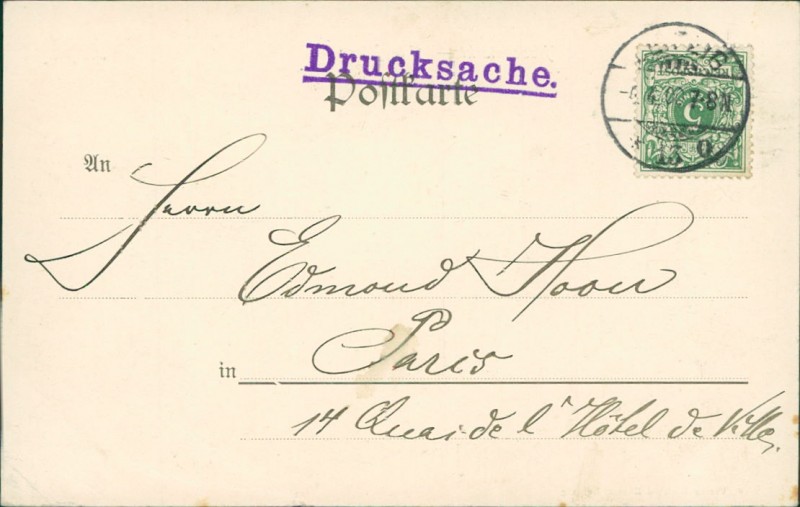 Drucksache.
Postkarte
7-8 N
An
Herrn
Edmond
in Paris
14 Quai de l'Hôtel de Ville,